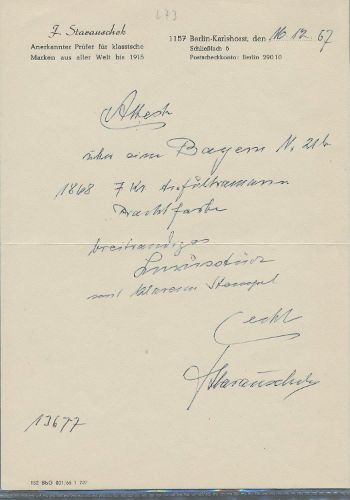 473
J. Starauschek
Anerkannter Prüfer für klassische
Marken aus aller Welt bis 1915
1157 Berlin-Karlshorst, den 16.12.67
Schließfach 5
Postscheckkonto: Berlin 290 10
Attest
über eine Bayern N. 21b
1868 7 Kr
Prachtfarbe
breitrandiges
Luxusstück
mit klarem Stempel
echt
Starauschek
13677